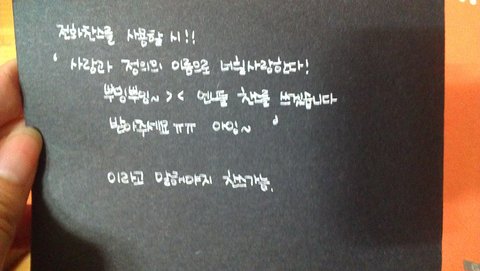 전화찬스를 사용할 시!!
' 사랑과 정의의 이름으로 너흴사랑한다!
뿌잉뿌잉~ > < 엔플 찬스를 쓰겠습니다
받아주세요ㅠㅠ 아잉~ '
이라고 말해야지 찬스가능.